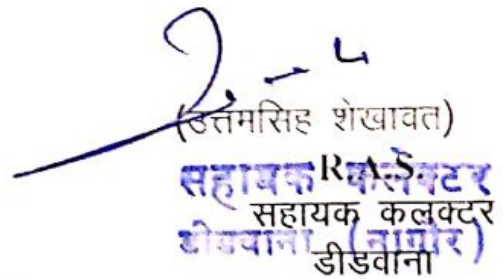 (उत्तमसिह शेखावत)
R.A.S.
सहायक कलेक्टर
सहायक कलक्टर
डीडवाना (नागौर)
डीडवाना